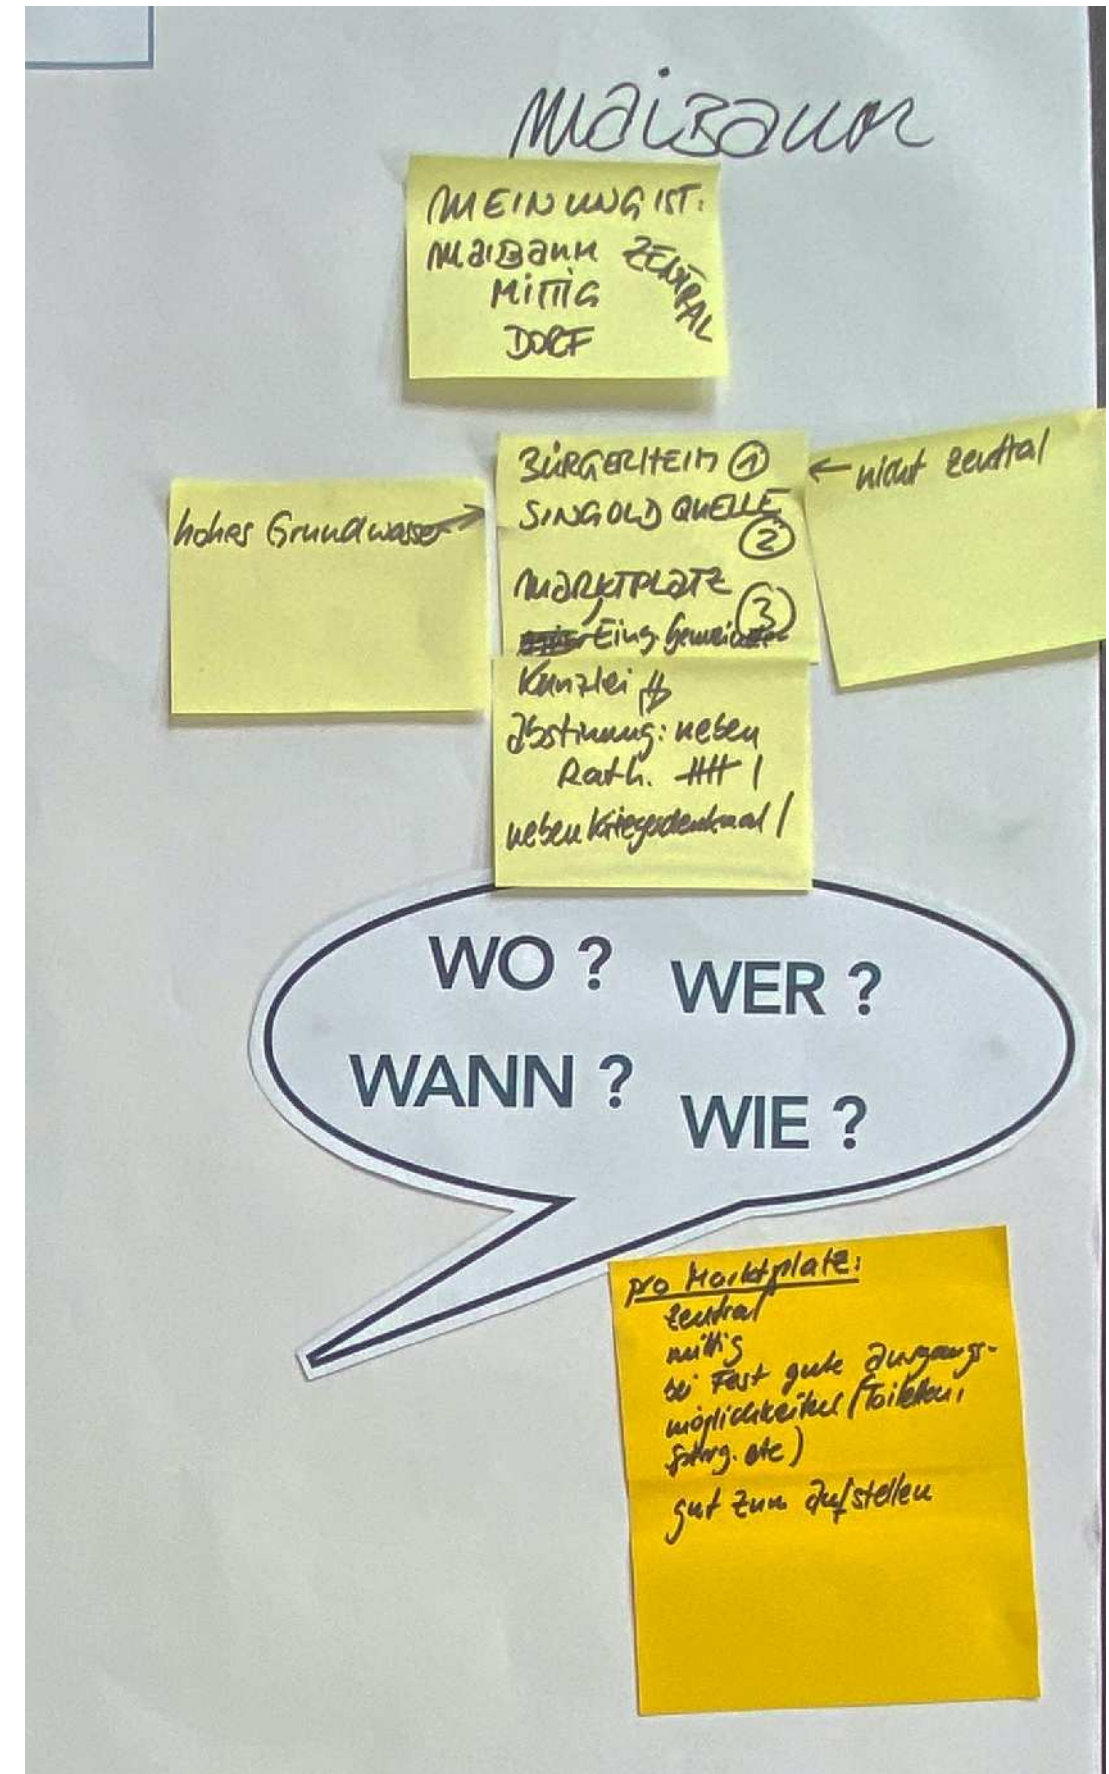 MaiBaum
MEINUNG IST:
MaiBaum ZENTRAL
MITTIG
DORF
hohes Grundwasser →
BÜRGERHEIM ①
SINGOLD QUELLE
②
MARKTPLATZ
③
Eing. Gemeinde
← nicht zentral
Kanzlei
Abstimmung: neben
Rath. 卌 |
neben Kriegerdenkmal |
WO ? WER ?
WANN ? WIE ?
pro Marktplatz:
zentral
mittig
bei Fest gute Ausgangs-
möglichkeiten (Toiletten,
etc)
gut zum Aufstellen